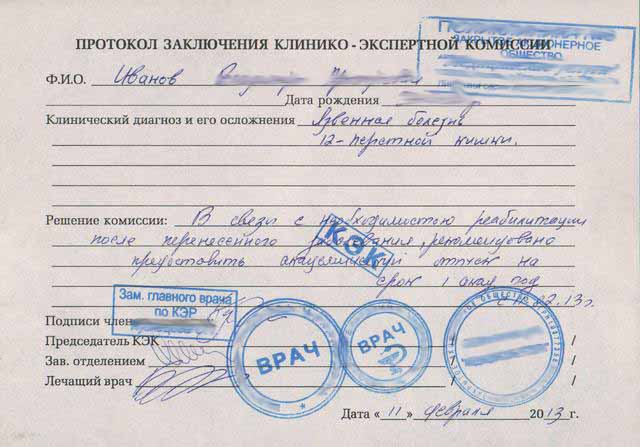 ЗАКРЫТОЕ АКЦИОНЕРНОЕ
ОБЩЕСТВО
ПРОТОКОЛ ЗАКЛЮЧЕНИЯ КЛИНИКО - ЭКСПЕРТНОЙ КОМИССИИ
Ф.И.О. Иванов
Дата рождения
Клинический диагноз и его осложнения Язвенная болезнь
12-перстной кишки.
Решение комиссии: В связи с необходимостью реабилитации
после перенесенного заболевания, рекомендовано
предоставить академический отпуск на
срок 1 акад год
02.13г.
КЭК
Зам. главного врача
по КЭР
Подписи член
Председатель КЭК / /
Зав. отделением / /
Лечащий врач / /
ВРАЧ
ВРАЧ
Дата « 11 » февраля 2013 г.